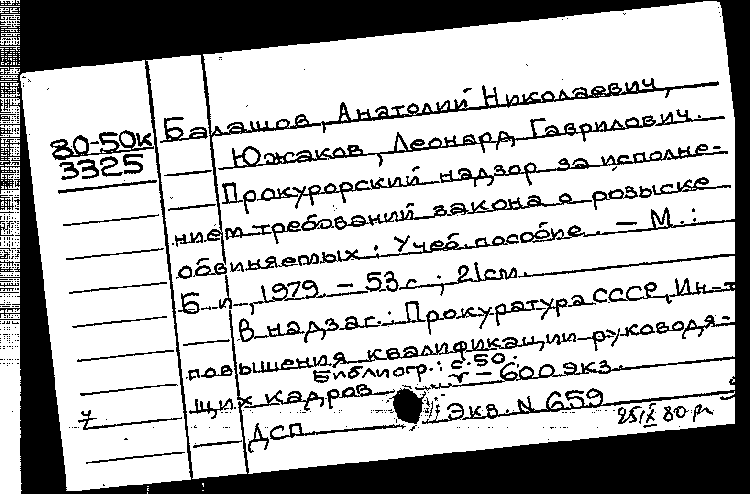 80-50к
3325
Балашов, Анатолий Николаевич,
Южаков, Леонард Гаврилович.
Прокурорский надзор за исполне-
нием требований закона о розыске
обвиняемых : Учеб. пособие. – М. :
Б. и., 1979. – 53 с. ; 21 см.
В надзаг.: Прокуратура СССР, Ин-т
повышения квалификации руководя-
щих кадров
Библиогр.: с. 50.
– 600 экз.
ДСП ; Экз. N 659
25/X 80